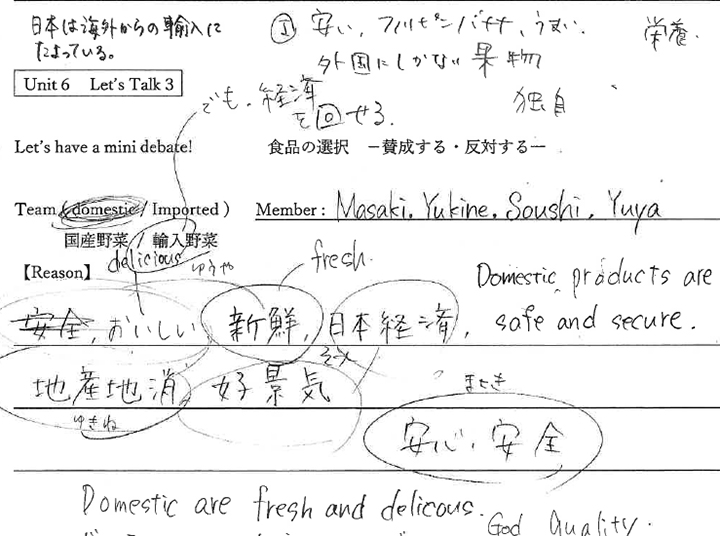 日本は海外からの輸入に
たよっている。
① 安い、フィリピンバナナ、うまい
外国にしかない果物
栄養.
独自
Unit 6 Let's Talk 3
でも、経済
を回せる.
Let's have a mini debate!
食品の選択 －賛成する・反対するー
Team ( domestic / Imported )
Member : Masaki. Yukine. Soushi. Yuya
国産野菜 / 輸入野菜
【Reason】
delicious
ゆうや
fresh.
Domestic products are
安全, おいしい 新鮮, 日本経済,
safe and secure.
そうし
地産地消 好景気
まさき
ゆきね
安心、安全
Domestic are fresh and delicous.
God Quality.